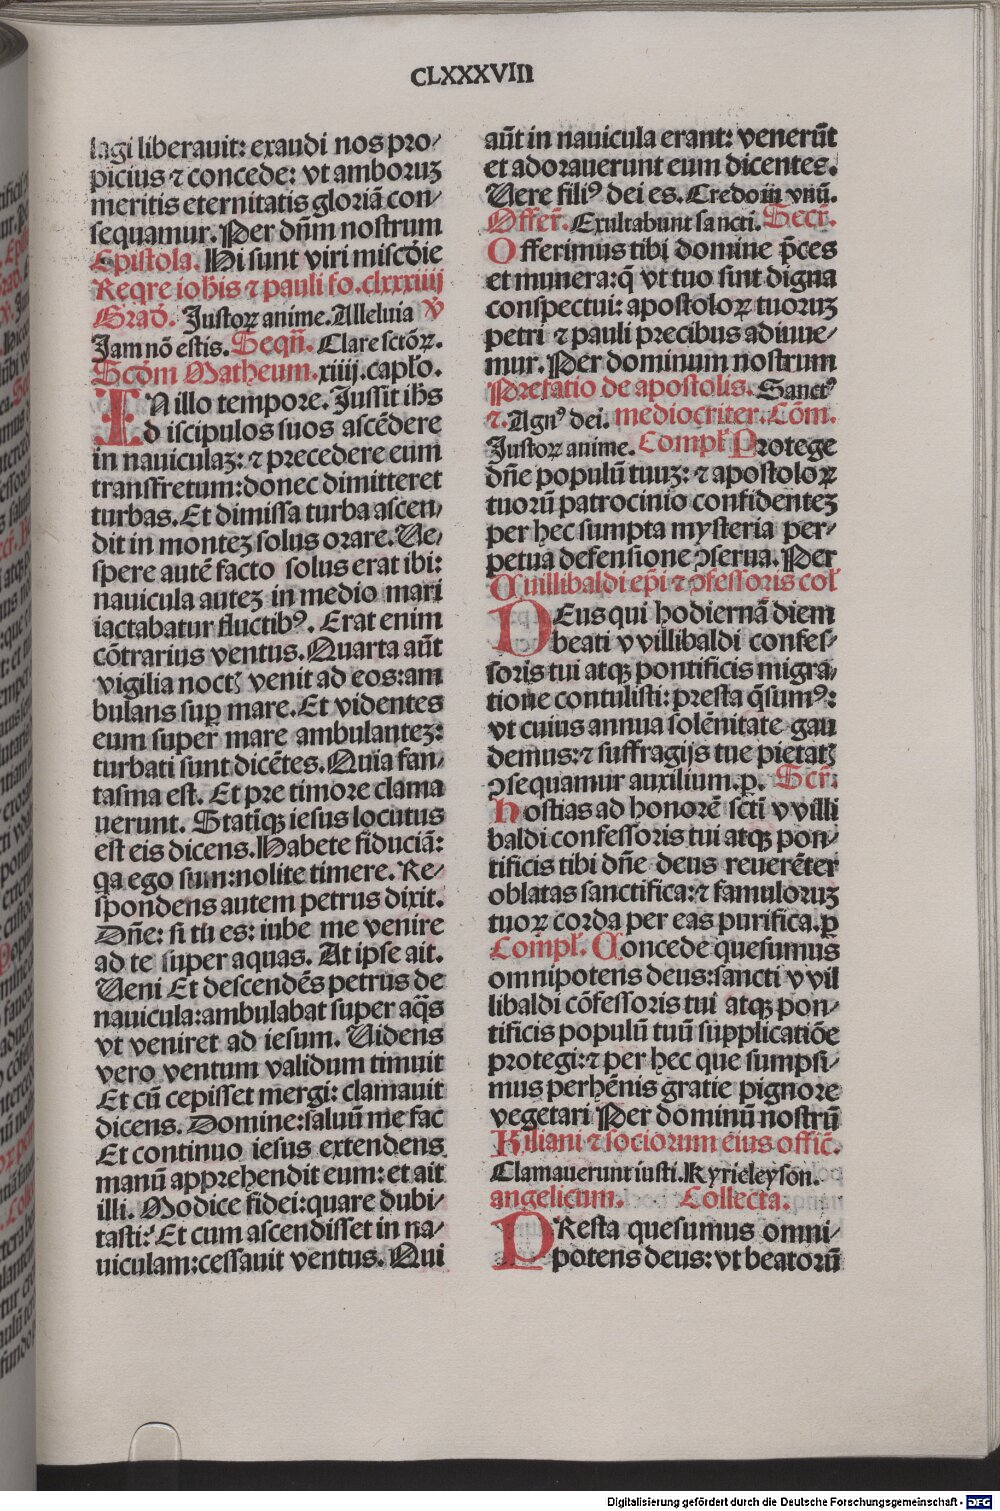 CLXXXVIII
lagi liberauit: exaudi nos pro/
picius ⁊ concede: vt amboruꝫ
meritis eternitatis gloriā con/
sequamur. Per dn̄m nostrum
Epistola. Hi sunt viri miscd̄ie
Reqre ioh̄is ⁊ pauli fo. clxxxiiij
Grad̄. Iustoꝝ anime. Alleluia v̄
Jam nō estis. Seqn̄. Clare sctōꝝ.
Scd̄m Matheum. xiiij. capl̄o.
IN illo tempore. Jussit ih̄s
discipulos suos ascēdere
in nauiculaꝫ: ⁊ precedere eum
transfretum: donec dimitteret
turbas. Et dimissa turba ascen/
dit in monteꝫ solus orare. Ue/
spere autē facto solus erat ibi:
nauicula auteꝫ in medio mari
iactabatur fluctibꝰ. Erat enim
cōtrarius ventus. Quarta aūt
vigilia noctꝭ venit ad eos: am
bulans suꝑ mare. Et videntes
eum super mare ambulanteꝫ:
turbati sunt dicētes. Quia fan/
tasma est. Et pre timore clama
uerunt. Statiqꝫ iesus locutus
est eis dicens. Habete fiduciā:
qa ego sum: nolite timere. Re/
spondens autem petrus dixit.
Dn̄e: si tu es: iube me venire
ad te super aquas. At ipse ait.
Ueni Et descendēs petrus de
nauicula: ambulabat super aq̄s
vt veniret ad iesum. Uidens
vero ventum validum timuit
Et cū cepisset mergi: clamauit
dicens. Domine: saluū me fac
Et continuo iesus extendens
manū apprehendit eum: et ait
illi. Modice fidei: quare dubi/
tasti: Et cum ascendisset in na/
uiculam: cessauit ventus. Qui
aūt in nauicula erant: venerūt
et adorauerunt eum dicentes.
Uere filiꝰ dei es. Credo in vnū.
Offer̄. Exultabunt sancti. Secr̄.
Offerimus tibi domine p̄ces
et munera: q̄ vt tuo sint digna
conspectui: apostoloꝝ tuoruꝫ
petri ⁊ pauli precibus adiuue/
mur. Per dominum nostrum
Prefatio de apostolis. Sanctꝰ
⁊. Agnꝰ dei. mediocriter. Cōm.
Justoꝝ anime. Compl̄ Protege
dn̄e populū tuuꝫ: ⁊ apostoloꝝ
tuorū patrocinio confidenteꝫ
per hec sumpta mysteria per/
petua defensione ꝯserua. Per
Uuillibaldi ep̄i ⁊ ꝯfessoris col̄
DEus qui hodiernā diem
beati vvillibaldi confes/
soris tui atqꝫ pontificis migra/
tione contulisti: presta q̄sumꝰ:
vt cuius annua solēnitate gau
demus: ⁊ suffragijs tue pietatꝭ
ꝯsequamur auxilium. ꝑ. Scr̄:
Hostias ad honorē sctī vvilli
baldi confessoris tui atqꝫ pon/
tificis tibi dn̄e deus reuerēter
oblatas sanctifica: ⁊ famuloruꝫ
tuoꝝ corda per eas purifica. ꝑ
Compl̄. Concede quesumus
omnipotens deus: sancti vvil
libaldi cōfessoris tui atqꝫ pon/
tificis populū tuū supplicatiōe
protegi: ⁊ per hec que sumpsi/
mus perhēnis gratie pignore
vegetari Per dominū nostrū
Kiliani ⁊ sociorum eius offic̄.
Clamauerunt iusti. Kyrieleyson.
angelicum. Collecta.
PResta quesumus omni/
potens deus: vt beatorū
Digitalisierung gefördert durch die Deutsche Forschungsgemeinschaft - DFG